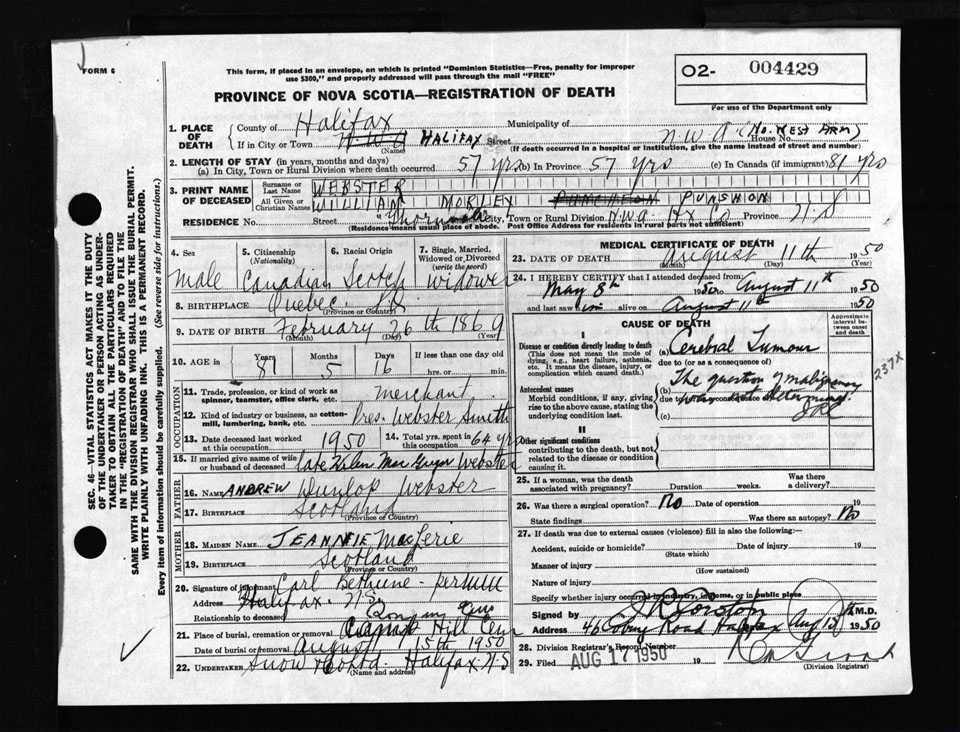 FORM 6
This form, if placed in an envelope, on which is printed "Dominion Statistics—Free, penalty for improper
use $300," and properly addressed will pass through the mail "FREE"
O2- 004429
For use of the Department only
PROVINCE OF NOVA SCOTIA—REGISTRATION OF DEATH
1. PLACE OF DEATH
County of Halifax Municipality of
If in City or Town N.W.A HALIFAX Street N.W.A (No. West Arm) House No.
(Name) (If death occurred in a hospital or institution, give the name instead of street and number)
2. LENGTH OF STAY (in years, months and days)
(a) In City, Town or Rural Division where death occurred 57 yrs (b) In Province 57 yrs (c) In Canada (if immigrant) 81 yrs
3. PRINT NAME OF DECEASED
Surname or Last Name WEBSTER
All Given or Christian Names WILLIAM MORLEY PUNCHEON PUNSHON
RESIDENCE No. Street City, Town or Rural Division N.W.A Hx Co Province N.S
(Residence means usual place of abode. Post Office Address for residents in rural parts not sufficient)
4. Sex
male
5. Citizenship (Nationality)
Canadian
6. Racial Origin
Scotch
7. Single, Married, Widowed or Divorced (write the word)
widower
8. BIRTHPLACE Quebec
(Province or Country)
9. DATE OF BIRTH February 26th 1869
(Month) (Day) (Year)
10. AGE in Years Months Days If less than one day old
81 5 16 hrs. or min.
OCCUPATION
11. Trade, profession, or kind of work as spinner, teamster, office clerk, etc. merchant
12. Kind of industry or business, as cotton-mill, lumbering, bank, etc. Pres. Webster Smith
13. Date deceased last worked at this occupation 1950
14. Total yrs. spent in this occupation 64 yrs
15. If married give name of wife or husband of deceased late Helen MacGregor Webster
FATHER
16. NAME ANDREW Dunlop Webster
17. BIRTHPLACE Scotland
(Province or Country)
MOTHER
18. MAIDEN NAME JEANNIE
19. BIRTHPLACE Scotland
(Province or Country)
20. Signature of informant Carl Bethune - per
Address Halifax N.S.
Relationship to deceased
21. Place of burial, cremation or removal Camp Hill Cem
Date of burial or removal August 15th 1950
22. UNDERTAKER Snow & Co Ltd. Halifax N.S
(Name and address)
MEDICAL CERTIFICATE OF DEATH
23. DATE OF DEATH August 11th 1950
(Month) (Day) (Year)
24. I HEREBY CERTIFY that I attended deceased from:
May 8th 1950 to August 11th 1950
and last saw him alive on August 11th 1950
CAUSE OF DEATH
Approximate interval between onset and death
I
Disease or condition directly leading to death
(This does not mean the mode of dying, e.g., heart failure, asthenia, etc. It means the disease, injury, or complication which caused death.)
(a) Cerebral Tumour
due to (or as a consequence of)
237X
Antecedent causes
Morbid conditions, if any, giving rise to the above cause, stating the underlying condition last.
(b) The question of malignancy
due to was not determined
(c)
II
Other significant conditions
contributing to the death, but not related to the disease or condition causing it.
25. If a woman, was the death associated with pregnancy? Duration weeks. Was there a delivery?
26. Was there a surgical operation? No Date of operation 19
State findings Was there an autopsy? No
27. If death was due to external causes (violence) fill in also the following:
Accident, suicide or homicide? Date of injury 19
(State which)
Manner of injury
(How sustained)
Nature of injury
Specify whether injury occurred in industry, in home, or in public place
Signed by M.D.
Address 46 Coburg Road Halifax Aug 1950
28. Division Registrar's Record Number
29. Filed AUG 17 1950 19
(Division Registrar)
SEC. 46—VITAL STATISTICS ACT MAKES IT THE DUTY
OF THE UNDERTAKER OR PERSON ACTING AS UNDER-
TAKER TO OBTAIN ALL THE PARTICULARS REQUIRED
IN THE "REGISTRATION OF DEATH" AND TO FILE THE
SAME WITH THE DIVISION REGISTRAR WHO SHALL ISSUE THE BURIAL PERMIT.
WRITE PLAINLY WITH UNFADING INK. THIS IS A PERMANENT RECORD.
Every item of information should be carefully supplied. (See reverse side for instructions.)